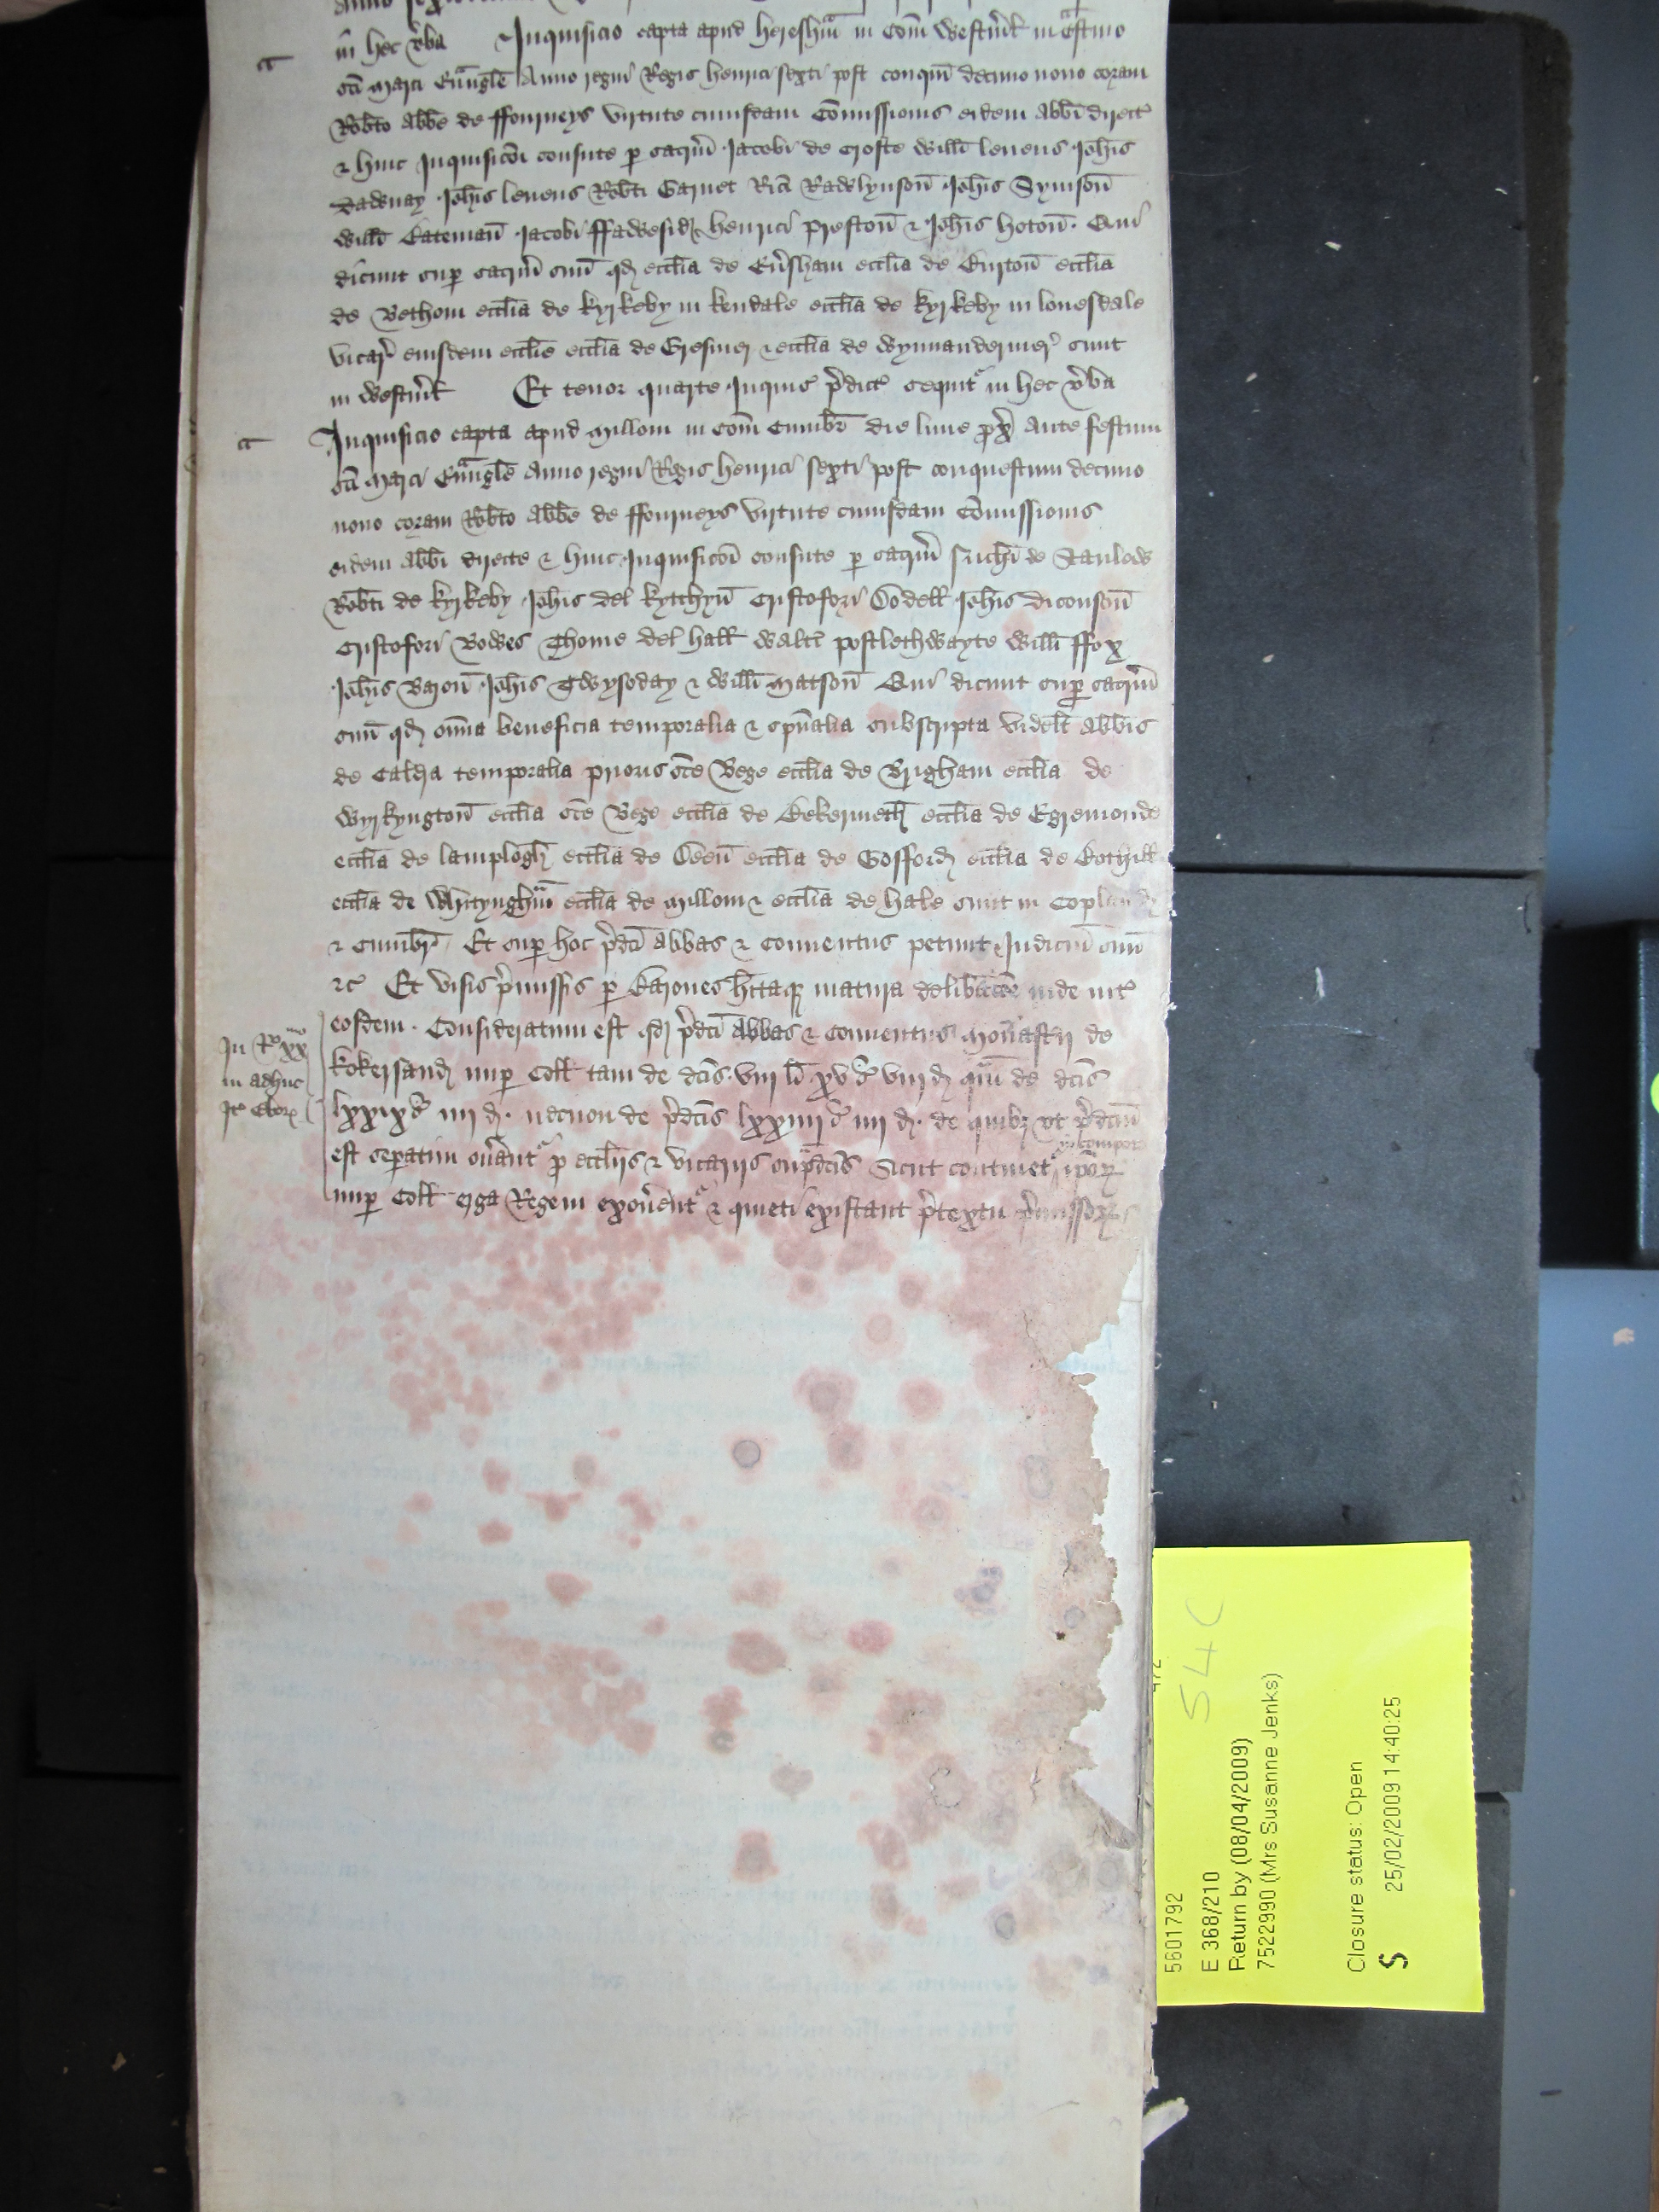 in hec v̉ba Inquisicio capta apud hereshm̄ in Com̄ Westm̉l in c̃stino
sc̄i Marci Eũngle Anno regni Regis henrici sexti post conqm̄ decimo nono coram
Rob̄to Abb̄e de ffourneys virtute cuiusdam Com̄issionis eidem Abb̄i direct̉
& huic Inquisic̄oi consute p sacrm̄ Jacobi de Crofte Will̄i levens Joh̄is
Dadunay Joh̄is levens Rob̄ti Garnet Ric̄i Radclynson̄ Joh̄is Symson̄
Will̄i Bateman̄ Jacobi ffadvesid henrici preston̄ & Joh̄is hoton̄. Qui
dicunt sup sacrm̄ suu̅ qd eccl̄ia de Eu̅sham eccl̄ia de Burton̄ eccl̄ia
de Bethom eccl̄ia de kyrkeby in kendale eccl̄ia de kyrkeby in lonesdale
vicar̉ eiusdem eccl̄ie eccl̄ia de Gresmer & eccl̄ia de Wynnandermer̉ sunt
in Westm̉l Et tenor quarte Inquis p̉dict̉ sequit̉ in hec v̉ba
Inquisicio capta apud Millom in Com̄ Cumbr̄ die lune px̉ Ante festum
sc̄i Marci Eũngle Anno regni Regis henrici sexti post conquestum decimo
nono coram Rob̄to Abb̄e de ffourneys virtute cuiusdam Com̄issionis
eidem Abb̄i directe & huic Inquisic̄oi consute p sacrm̄ Nich̄i de Stanlow
Rob̄ti de kyrkeby Joh̄is del kytchyn̄ Cristofori Godell Joh̄is diconson̄
Cristofori Bowes Thome del hall Walt̄i postlethwayte Will̄i ffox
Joh̄is Baron̄ Joh̄is Twysoday & Will̄i Matson̄ Qui dicunt sup sacrm̄
suu̅ qd om̄ia beneficia temporalia & spu̅alia subscripta videl̄t Abb̄is
de Caldra temporalia prioris sc̄e Bege eccl̄ia de Brigham eccl̄ia de
Wyrkyngton̄ eccl̄ia sc̄e Bege eccl̄ia de Cokermoth eccl̄ia de Egremonde
eccl̄ia de lamplogh eccl̄ia de Deen̄ eccl̄ia de Gosford eccl̄ia de Bothill
eccl̄ia de Whityngham eccl̄ia de Millom & eccl̄ia de hale sunt in Copland
& Cumbr̄. Et sup hoc p̉dc̄i Abbas & Conventus petunt Judiciu̅ suu̅
&c̉ Et visis p̉missis p Barones h̄itaq matura delib̄ac̄oe inde int̉
eosdem. Consideratum est qd p̉dc̄i Abbas & Conventus Monast̉ii de
kokersand nup Coll tam de dc̄is. viij li xv s̉ viij d qu̅ de dc̄is
lxxix s̉ iiij d. necnon de p̉dc̄is lxxiiij s̉ iiij d. de quib ut p̉dctm̄
est sepatim on̉ant̉ p eccl̄iis & vicariis sup̉dc̄is sicut continet̉ ip̄or
nup Coll erga Regem exon̉ent̉ & quieti existant p̉textu p̉missor
In Ro xx
in adhuc
It Ebor
5601792
E 368/210
Return by (08/04/2009)
7522990 (Mrs Susanne Jenks)
Closure status: Open
S 25/02/2009 14:40:25
54C